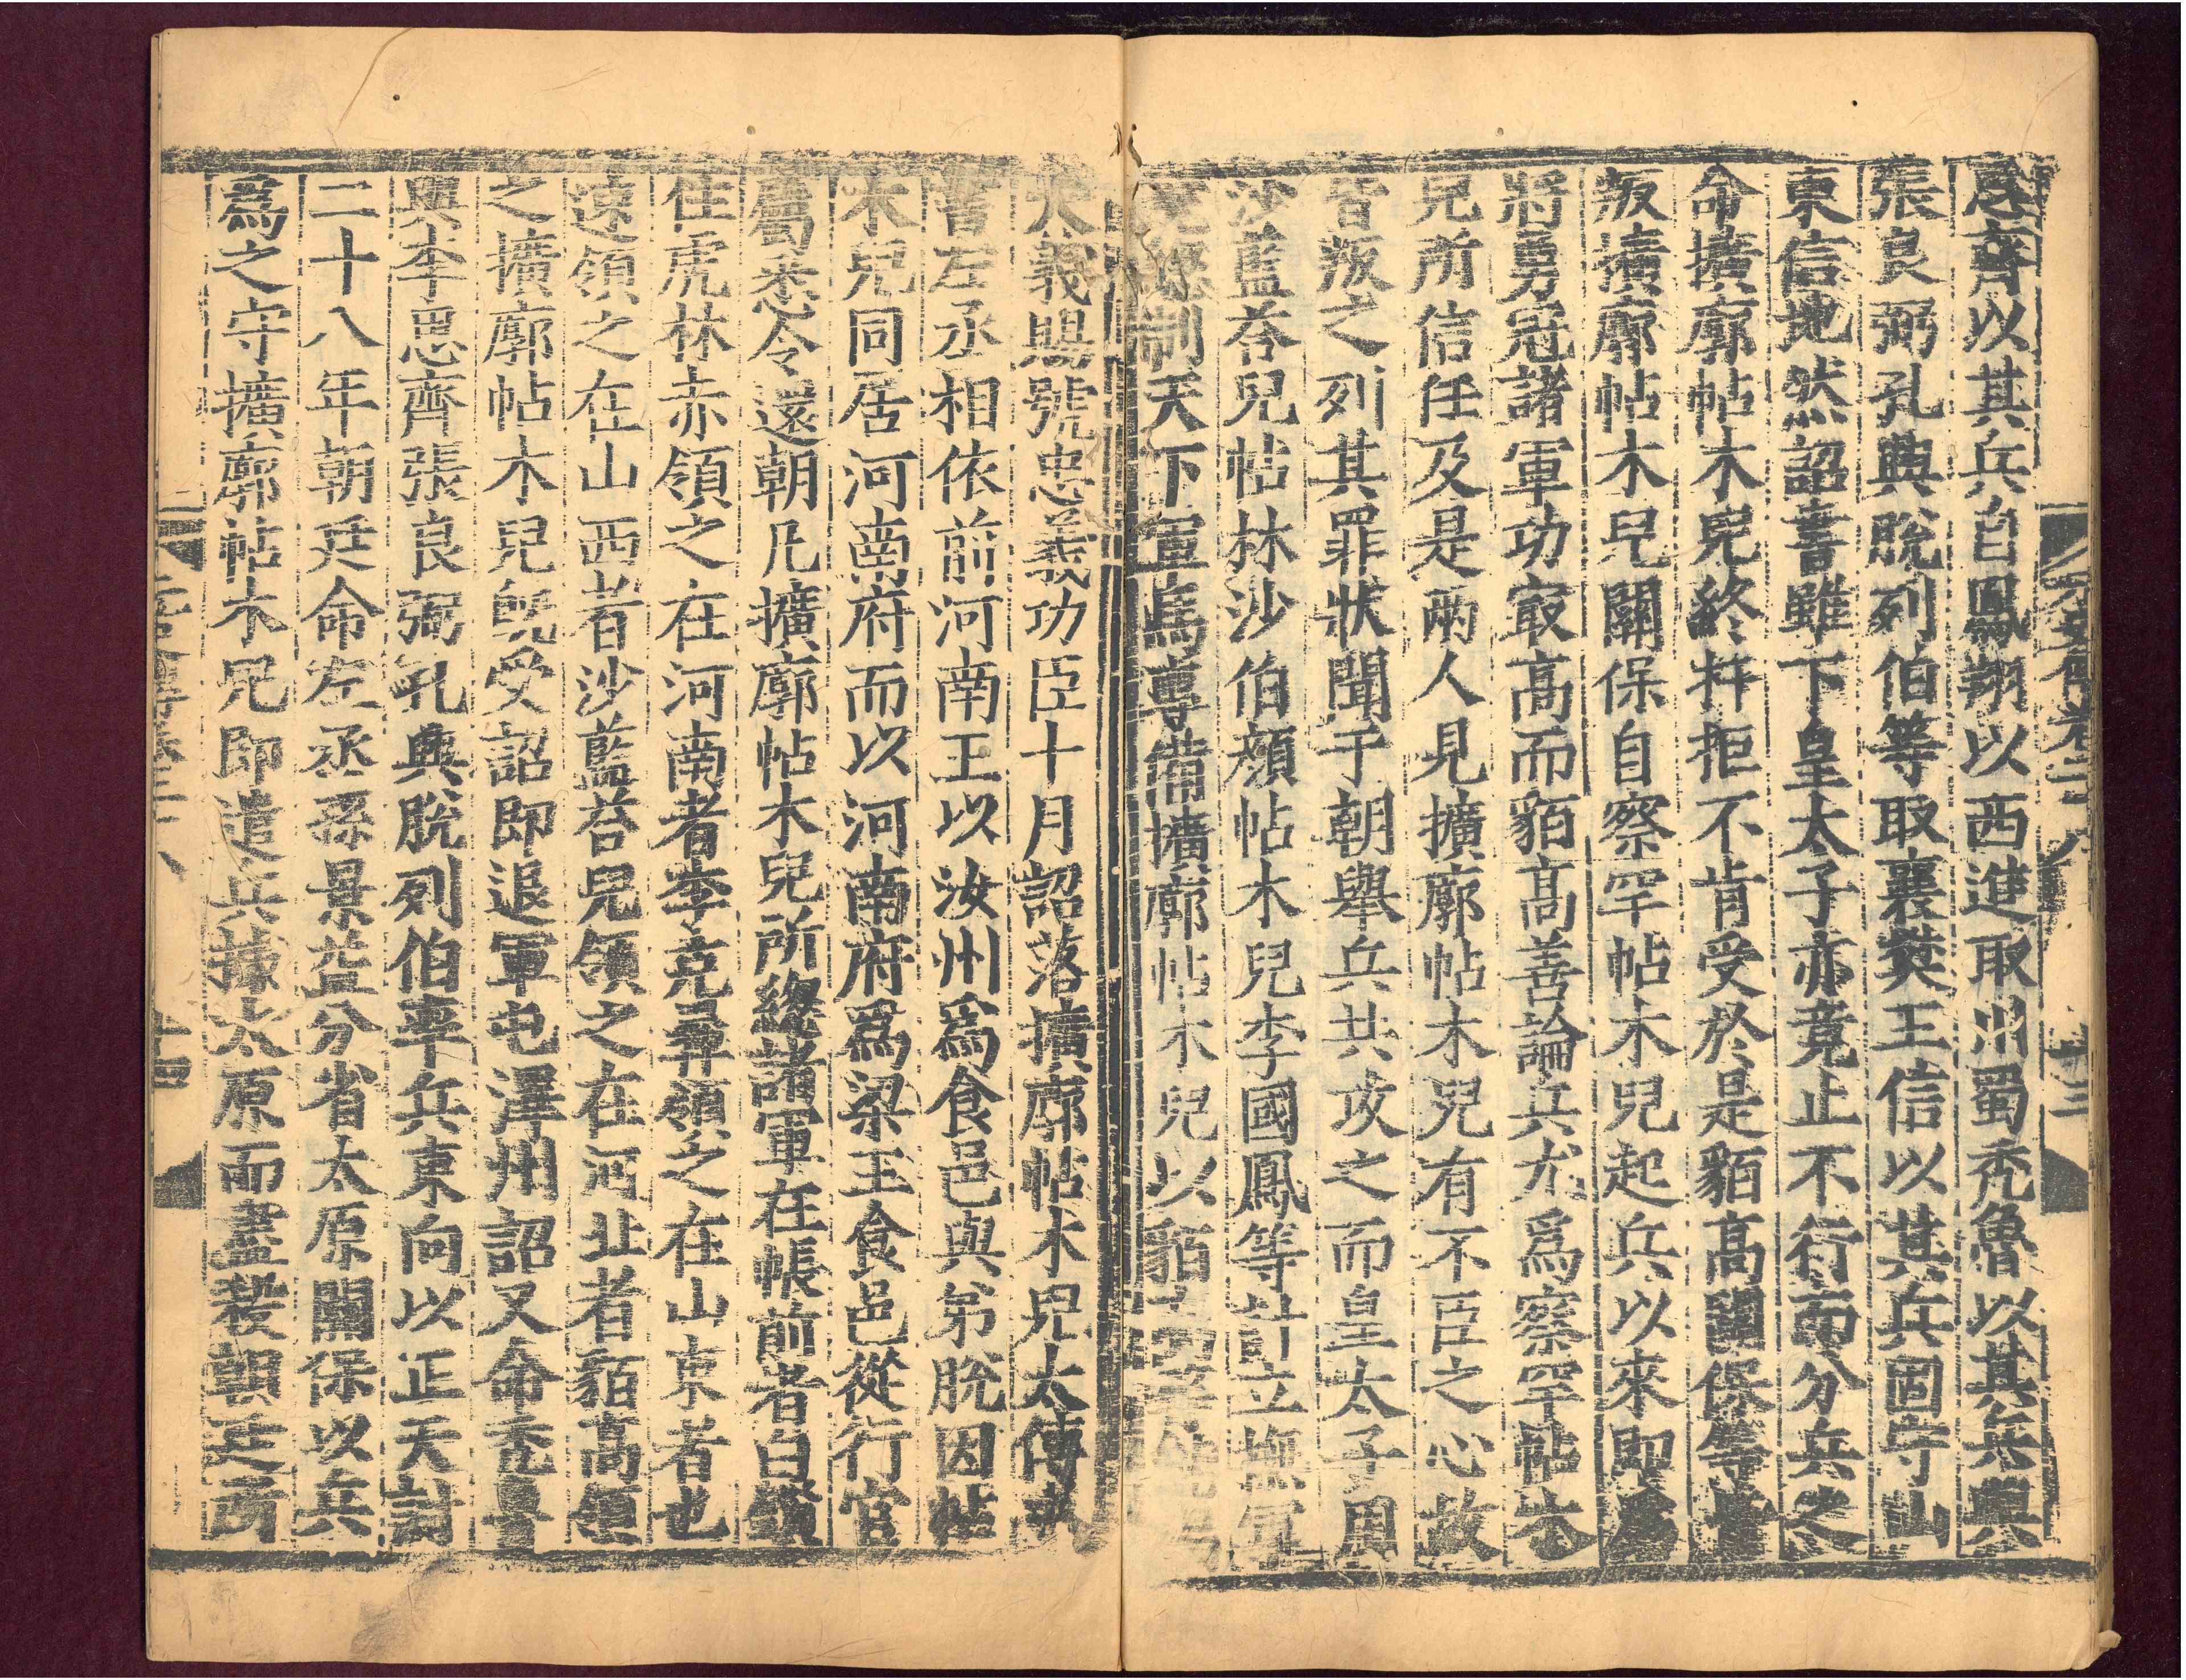 思齊以其兵自鳳翔以西進取川蜀禿魯以其兵與
張良弼孔興脫列伯等取襄樊王信以其兵固守山
東信地然詔書雖下皇太子亦竟止不行而分兵之
命擴廓帖木兒終扞拒不肯受於是貊高關保等皆
叛擴廓帖木兒關保自察罕帖木兒起兵以來即爲
將勇冠諸軍功㝡高而貊高善論兵尤爲察罕帖木
兒所信任及是兩人見擴廓帖木兒有不臣之心故
皆叛之列其罪狀聞于朝舉兵共攻之而皇太子用
沙藍荅兒帖林沙伯顏帖木兒李國鳳等計立撫軍
院總制天下軍馬專備擴廓帖木兒以貊高
大義賜號忠義功臣十月詔落擴廓帖木兒太傅中
書左丞相依前河南王以汝州爲食邑與弟脫因帖
木兒同居河南府而以河南府爲梁王食邑從行官
屬悉令還朝凡擴廓帖木兒所總諸軍在帳前者白鎖
住虎林赤領之在河南者李克彝領之在山東者也
速領之在山西者沙藍荅兒領之在河北者貊高領
之擴廓帖木兒旣受詔即退軍屯澤州詔又命禿魯
與李思齊張良弼孔興脫列伯率兵東向以正天討
二十八年朝廷命左丞孫景益分省太原關保以兵
爲之守擴廓帖木兒即遣兵據太原而盡殺朝廷所
元史傳卷二十八
十三
十四